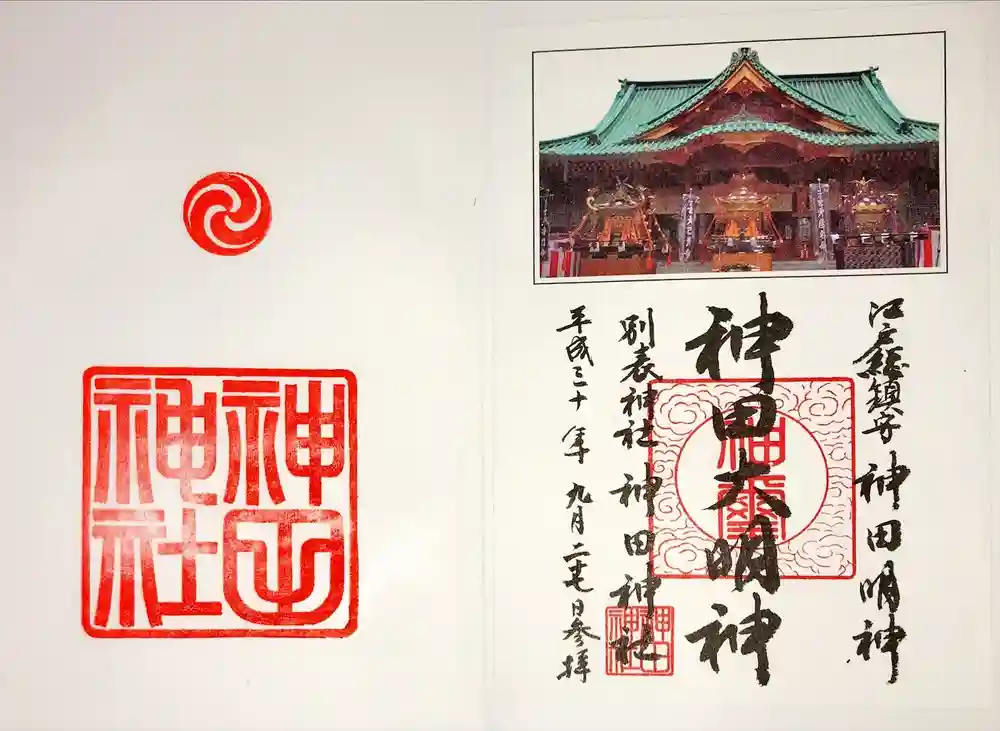 江戸総鎮守 神田明神
神田大明神
別表神社 神田神社
神田神社
平成三十年 九月二十七日参拝
神田神社